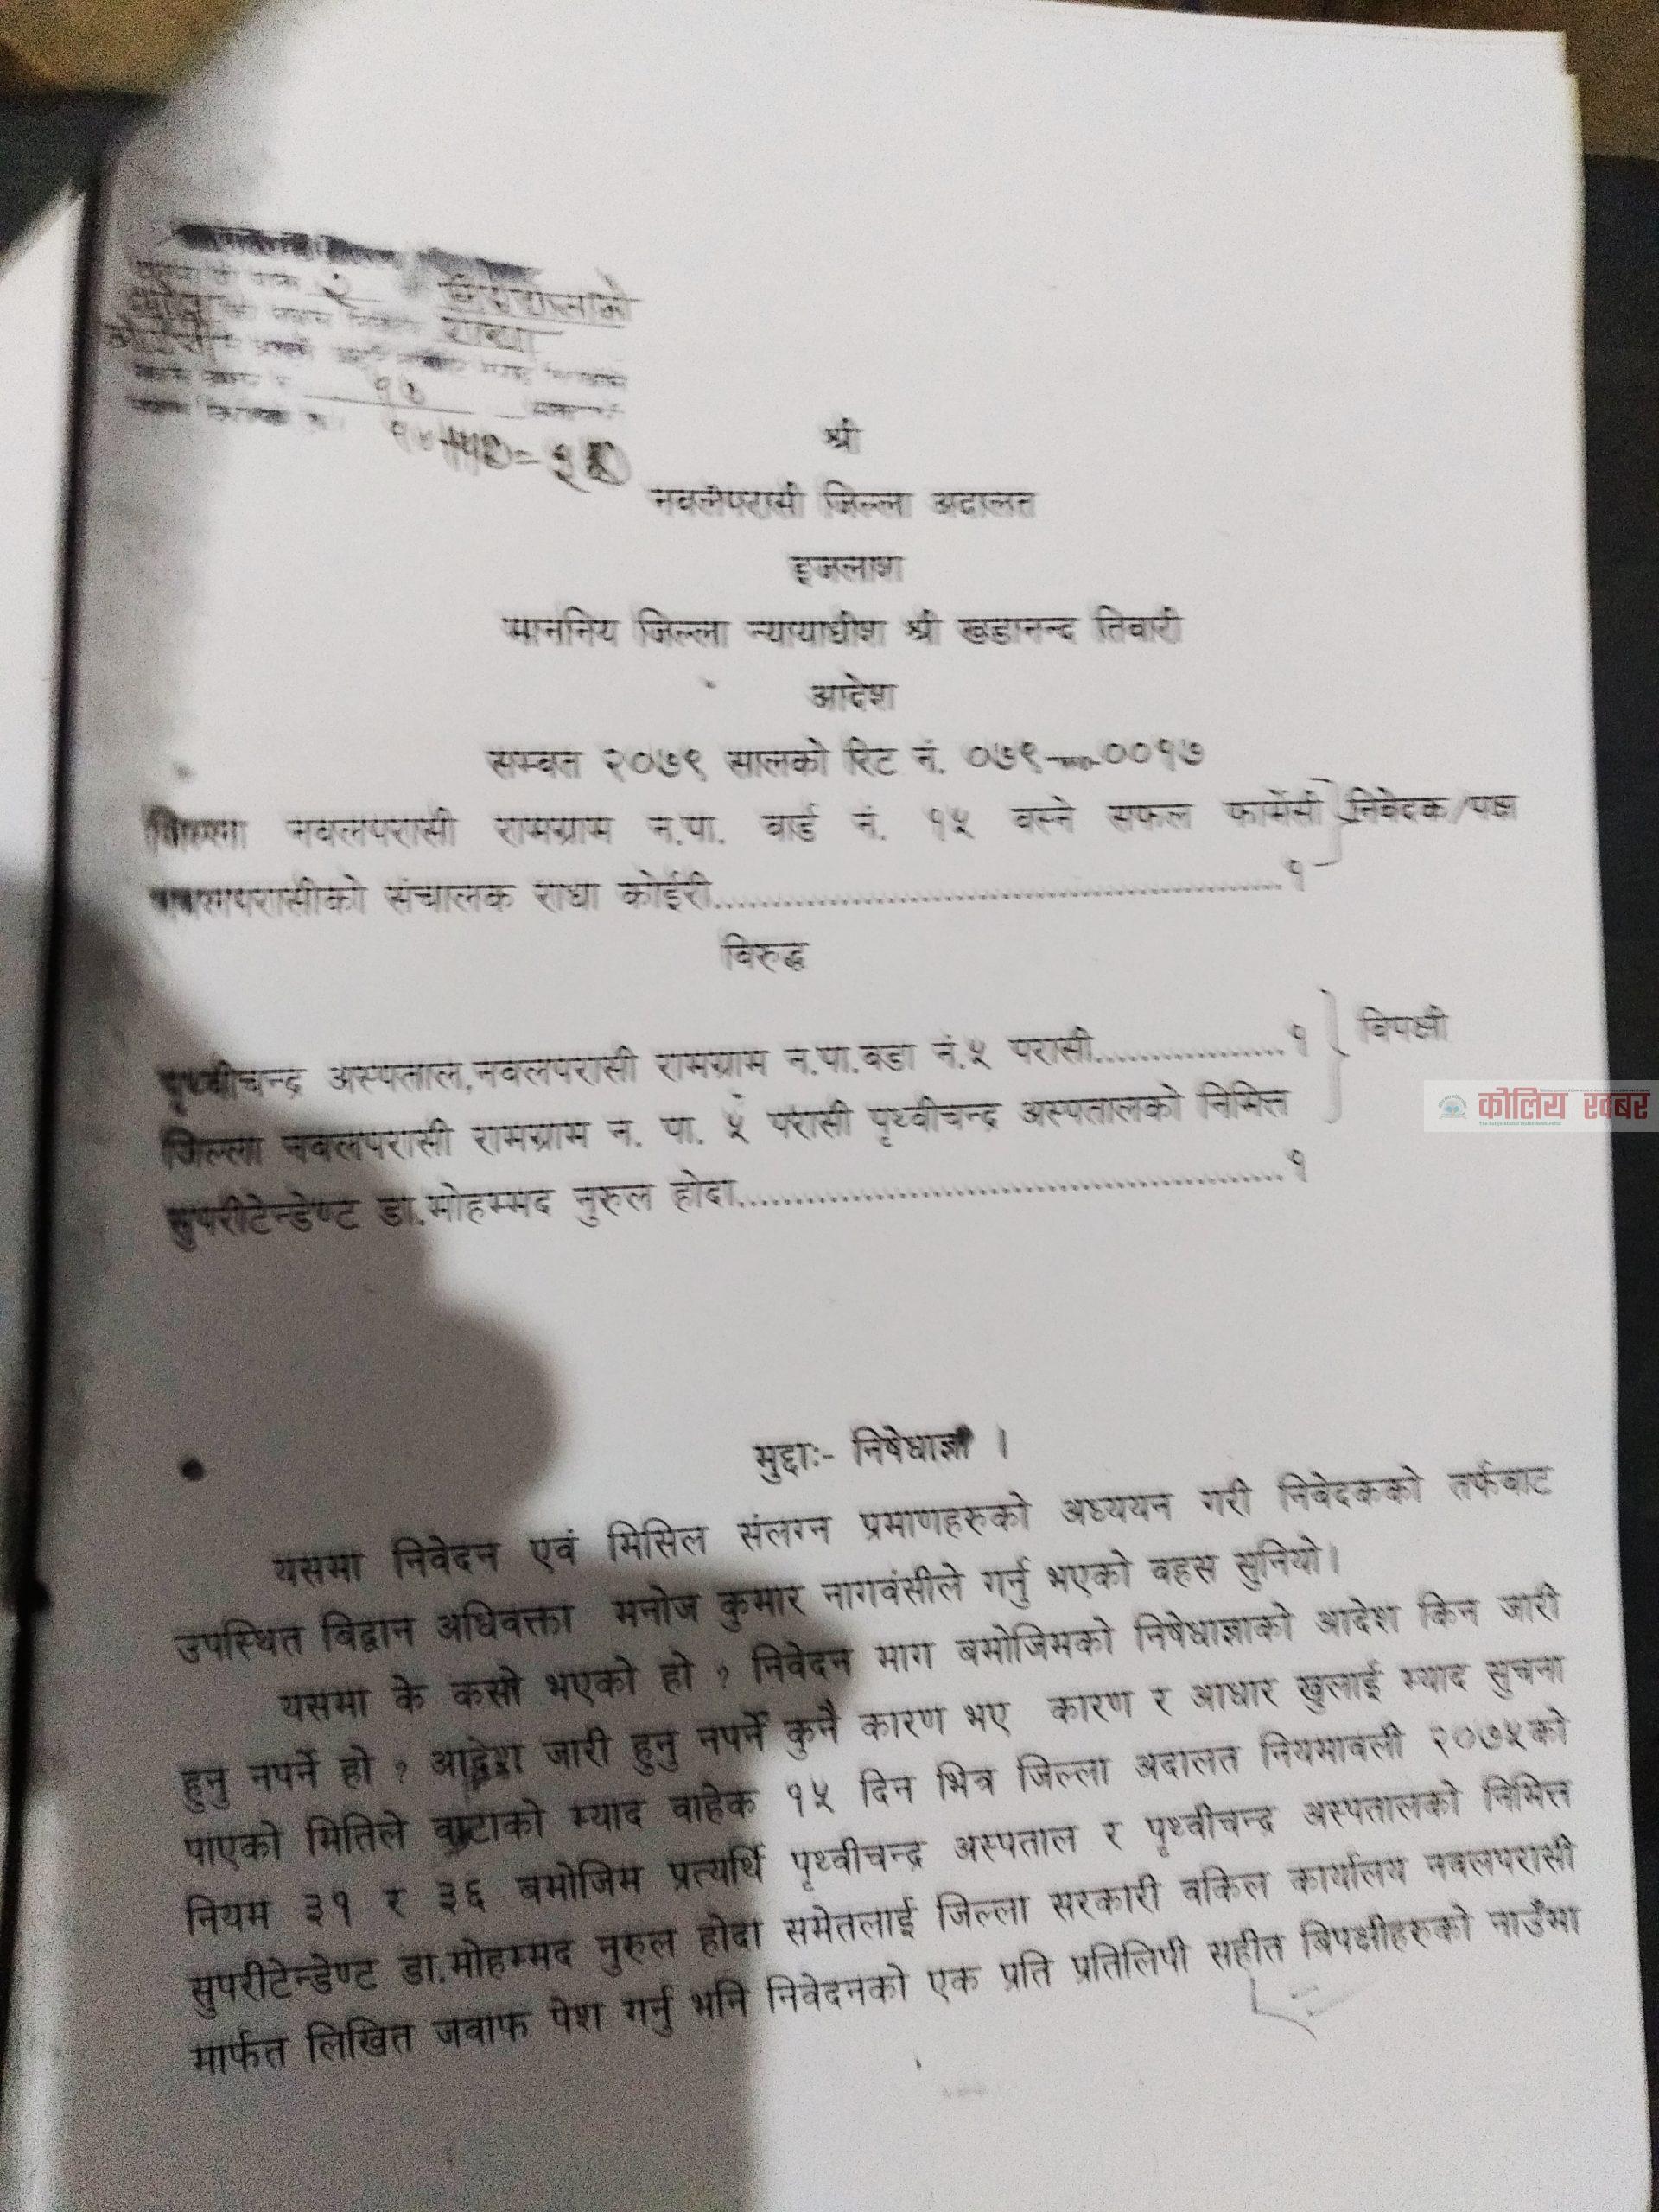 श्री
नवलपरासी जिल्ला अदालत
इजलाश
माननिय जिल्ला न्यायाधीश श्री खडानन्द तिवारी
आदेश
सम्वत २०७९ सालको रिट नं. ०७९-००१७
जिल्ला नवलपरासी रामग्राम न.पा. वार्ड नं. १५ वस्ने सफल फार्मेसी निवेदक/पक्ष
नवलपरासीको संचालक राधा कोईरी..............................................१
विरुद्ध
पृथ्वीचन्द्र अस्पताल,नवलपरासी रामग्राम न.पा.वडा नं.५ परासी.................१ विपक्षी
जिल्ला नवलपरासी रामग्राम न. पा. ५ परासी पृथ्वीचन्द्र अस्पतालको निमित्त
सुपरीटेन्डेण्ट डा.मोहम्मद नुरुल होदा..............................................१
कोलिय खबर
मुद्दाः- निषेधाज्ञा ।
यसमा निवेदन एवं मिसिल संलग्न प्रमाणहरुको अध्ययन गरी निवेदकको तर्फबाट
उपस्थित विद्वान अधिवक्ता मनोज कुमार नागवंसीले गर्नु भएको वहस सुनियो।
यसमा के कसो भएको हो ? निवेदन माग बमोजिमको निषेधाज्ञाको आदेश किन जारी
हुनु नपर्ने हो ? आदेश जारी हुनु नपर्ने कुनै कारण भए कारण र आधार खुलाई म्याद सुचना
पाएको मितिले वाटाको म्याद वाहेक १५ दिन भित्र जिल्ला अदालत नियमावली २०७५को
नियम ३१ र ३६ बमोजिम प्रत्यर्थि पृथ्वीचन्द्र अस्पताल र पृथ्वीचन्द्र अस्पतालको निमित्त
सुपरीटेन्डेण्ट डा.मोहम्मद नुरुल होदा समेतलाई जिल्ला सरकारी वकिल कार्यालय नवलपरासी
मार्फत लिखित जवाफ पेश गर्नु भनि निवेदनको एक प्रति प्रतिलिपी सहीत बिपक्षीहरुको नाउँमा